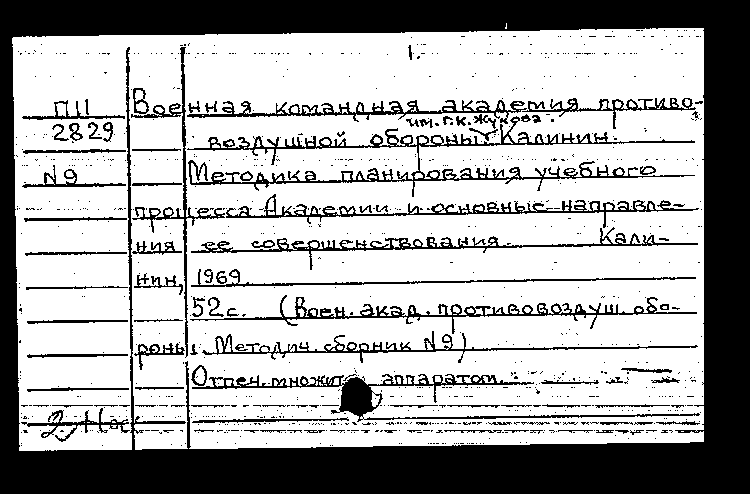 1.
ПII Военная командная академия противо-
им. Г.К. Жукова.
2829 воздушной обороны. Калинин.
N9 Методика планирования учебного
процесса Академии и основные направле-
ния ее совершенствования. Кали-
нин, 1969.
52с. (Воен. акад. противовоздуш. обо-
роны. Методич. сборник N9)
Отпеч. множит. аппаратом.